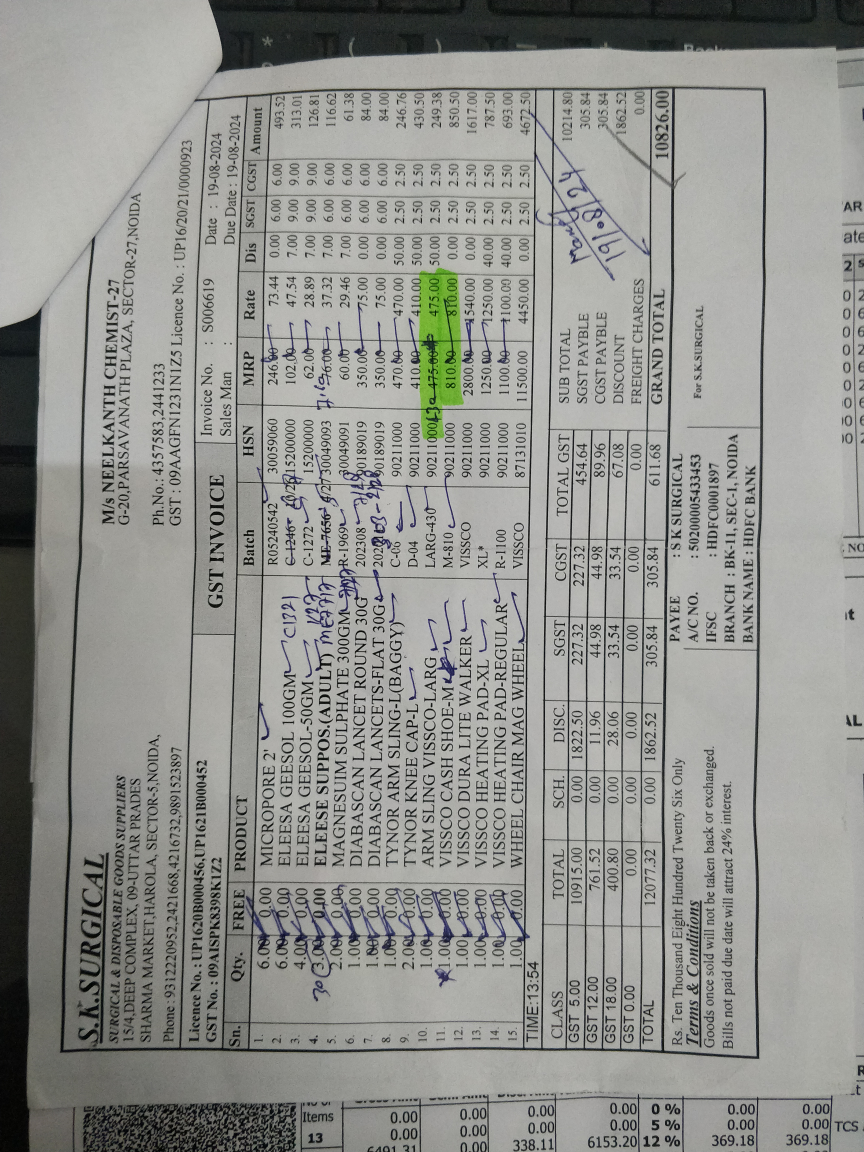 S.K.SURGICAL
SURGICAL & DISPOSABLE GOODS SUPPLIERS
15/4,DEEP COMPLEX, 09-UTTAR PRADES
SHARMA MARKET,HAROLA, SECTOR-5,NOIDA,
Phone : 9312220952,2421668,4216732,9891523897
M/s NEELKANTH CHEMIST-27
G-20,PARSAVANATH PLAZA, SECTOR-27,NOIDA
Ph.No.: 4357583,2441233
GST : 09AAGFN1231N1Z5 Licence No.: UP16/20/21/0000923
Licence No.: UP1620B000456,UP1621B000452
GST No. : 09AISPK8398K1Z2
GST INVOICE
Invoice No. : S006619 Date : 19-08-2024
Sales Man : Due Date : 19-08-2024
Sn. Qty. FREE PRODUCT Batch HSN MRP Rate Dis SGST CGST Amount
1. 6.00 0.00 MICROPORE 2' R05240542 30059060 246.00 73.44 0.00 6.00 6.00 493.52
2. 6.00 0.00 ELEESA GEESOL 100GM C1321 C-1246 15200000 102.00 47.54 7.00 9.00 9.00 313.01
3. 4.00 0.00 ELEESA GEESOL-50GM C-1272 15200000 62.00 28.89 7.00 9.00 9.00 126.81
4. 3.00 0.00 ELEESE SUPPOS.(ADULT) ME-7656 30049093 76.00 37.32 7.00 6.00 6.00 116.62
5. 2.00 0.00 MAGNESUIM SULPHATE 300GM R-1969 30049091 60.00 29.46 7.00 6.00 6.00 61.38
6. 1.00 0.00 DIABASCAN LANCET ROUND 30G 202308 90189019 350.00 75.00 0.00 6.00 6.00 84.00
7. 1.00 0.00 DIABASCAN LANCETS-FLAT 30G 90189019 350.00 75.00 0.00 6.00 6.00 84.00
8. 1.00 0.00 TYNOR ARM SLING-L(BAGGY) C-06 90211000 470.00 470.00 50.00 2.50 2.50 246.76
9. 2.00 0.00 TYNOR KNEE CAP-L D-04 90211000 410.00 410.00 50.00 2.50 2.50 430.50
10. 1.00 0.00 ARM SLING VISSCO-LARG LARG-430 90211000 430 475.00 475.00 50.00 2.50 2.50 249.38
11. 1.00 0.00 VISSCO CASH SHOE-M M-810 90211000 810.00 810.00 0.00 2.50 2.50 850.50
12. 1.00 0.00 VISSCO DURA LITE WALKER VISSCO 90211000 2800.00 1540.00 0.00 2.50 2.50 1617.00
13. 1.00 0.00 VISSCO HEATING PAD-XL XL* 90211000 1250.00 1250.00 40.00 2.50 2.50 787.50
14. 1.00 0.00 VISSCO HEATING PAD-REGULAR R-1100 90211000 1100.00 1100.00 40.00 2.50 2.50 693.00
15. 1.00 0.00 WHEEL CHAIR MAG WHEEL VISSCO 87131010 11500.00 4450.00 0.00 2.50 2.50 4672.50
TIME:13:54
CLASS TOTAL SCH. DISC. SGST CGST TOTAL GST
GST 5.00 10915.00 0.00 1822.50 227.32 227.32 454.64
GST 12.00 761.52 0.00 11.96 44.98 44.98 89.96
GST 18.00 400.80 0.00 28.06 33.54 33.54 67.08
GST 0.00 0.00 0.00 0.00 0.00 0.00 0.00
TOTAL 12077.32 0.00 1862.52 305.84 305.84 611.68
SUB TOTAL 10214.80
SGST PAYBLE 305.84
CGST PAYBLE 305.84
DISCOUNT 1862.52
FREIGHT CHARGES 0.00
GRAND TOTAL 10826.00
19/08/24
Rs. Ten Thousand Eight Hundred Twenty Six Only
Terms & Conditions
Goods once sold will not be taken back or exchanged.
Bills not paid due date will attract 24% interest.
PAYEE : S K SURGICAL
A/C NO. : 50200005433453
IFSC : HDFC0001897
BRANCH : BK-11, SEC-1, NOIDA
BANK NAME : HDFC BANK
For S.K.SURGICAL
Items
13
0.00 0.00 0.00 0.00 0 % 0.00 0.00
0.00 0.00 0.00 0.00 5 % 0.00 0.00 TCS
338.11 6153.20 12 % 369.18 369.18